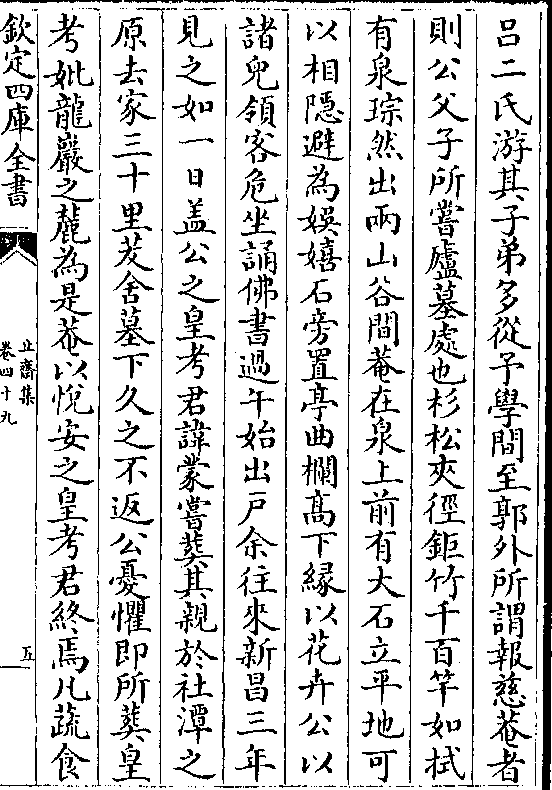 吕二氏游其子弟多從予學間至郭外所謂報慈菴者
則公父子所嘗廬墓處也杉松夾徑鉅竹千百竿如拭
有泉琮然出兩山谷間菴在泉上前有大石立平地可
以相隱避為娛嬉石旁置亭曲欄高下緣以花卉公以
諸兒領客危坐誦佛書過午始出戶余往來新昌三年
見之如一日盖公之皇考君諱蒙嘗葬其親於社潭之
原去家三十里茇舍墓下久之不返公憂懼即所葬皇
考妣龍巖之麓為是菴以悅安之皇考君終焉凡蔬食
欽定四庫全書
止齋集
卷四十九
五